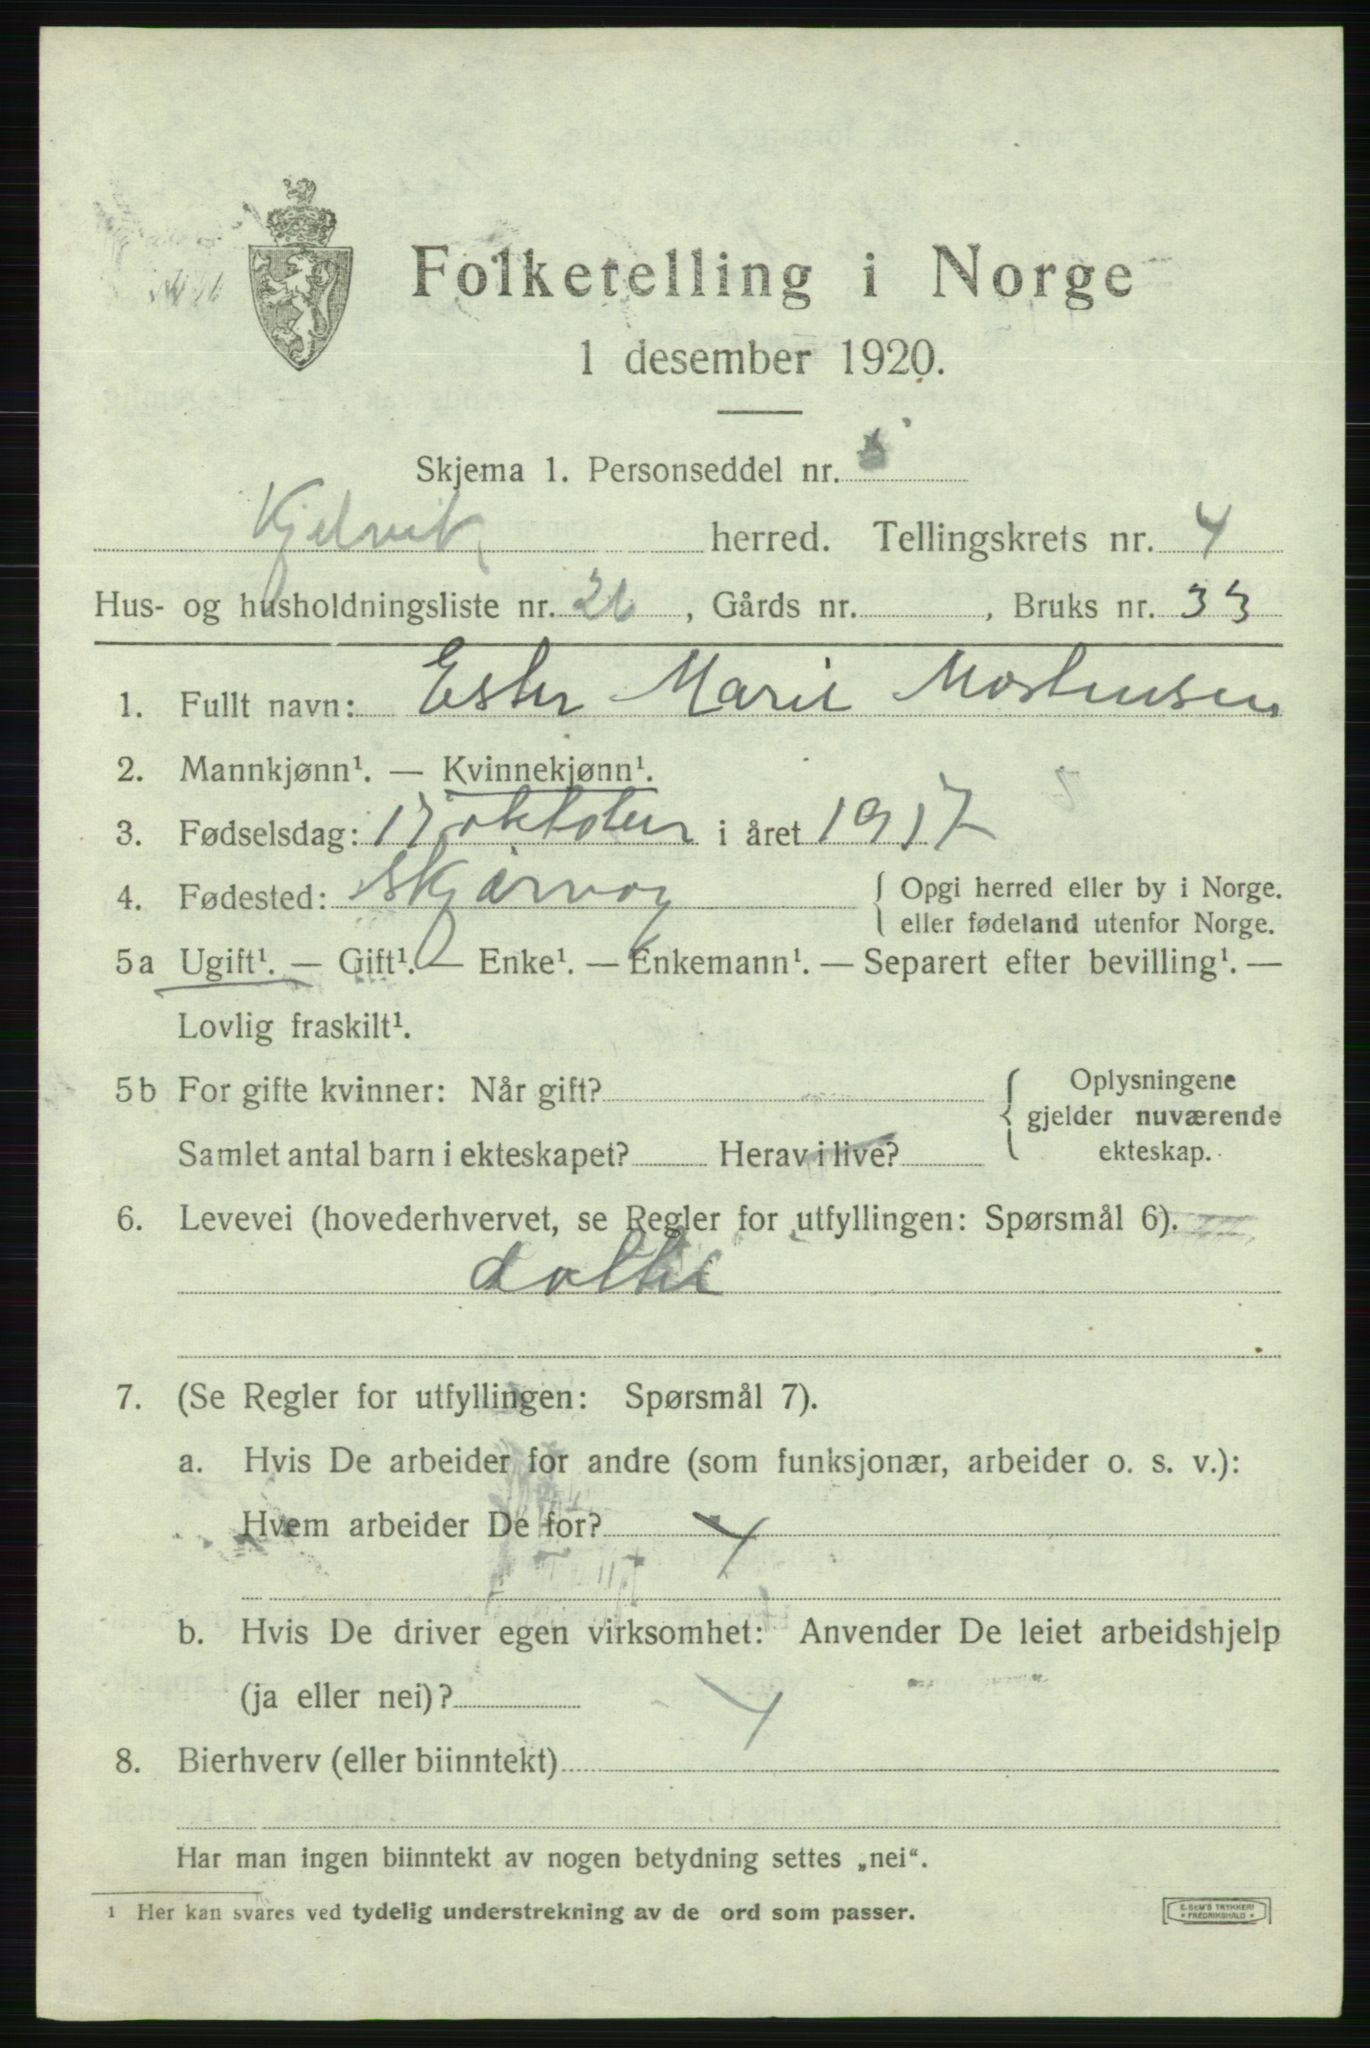 Folketelling i Norge
1 desember 1920.
Skjema 1. Personseddel nr.
Kjelvik herred. Tellingskrets nr. 4
Hus- og husholdningsliste nr. 26, Gårds nr. , Bruks nr. 33
1. Fullt navn: Ester Marie Mortensen
2. Mannkjønn¹. — Kvinnekjønn¹.
3. Fødselsdag: 17 oktober i året 1917
4. Fødested: Skjærvøy { Opgi herred eller by i Norge.
eller fødeland utenfor Norge.
5a Ugift¹. — Gift¹. — Enke¹. — Enkemann¹. — Separert efter bevilling¹. —
Lovlig fraskilt¹.
5b For gifte kvinner: Når gift? { Oplysningene
gjelder nuværende
Samlet antal barn i ekteskapet? Herav i live? ekteskap.
6. Levevei (hovederhvervet, se Regler for utfyllingen: Spørsmål 6).
datter
7. (Se Regler for utfyllingen: Spørsmål 7).
a. Hvis De arbeider for andre (som funksjonær, arbeider o. s. v.):
Hvem arbeider De for?
b. Hvis De driver egen virksomhet: Anvender De leiet arbeidshjelp
(ja eller nei)?
8. Bierhverv (eller biinntekt)
Har man ingen biinntekt av nogen betydning settes „nei“.
¹ Her kan svares ved tydelig understrekning av de ord som passer.
E. SEM'S TRYKKERI
FREDRIKSHALD